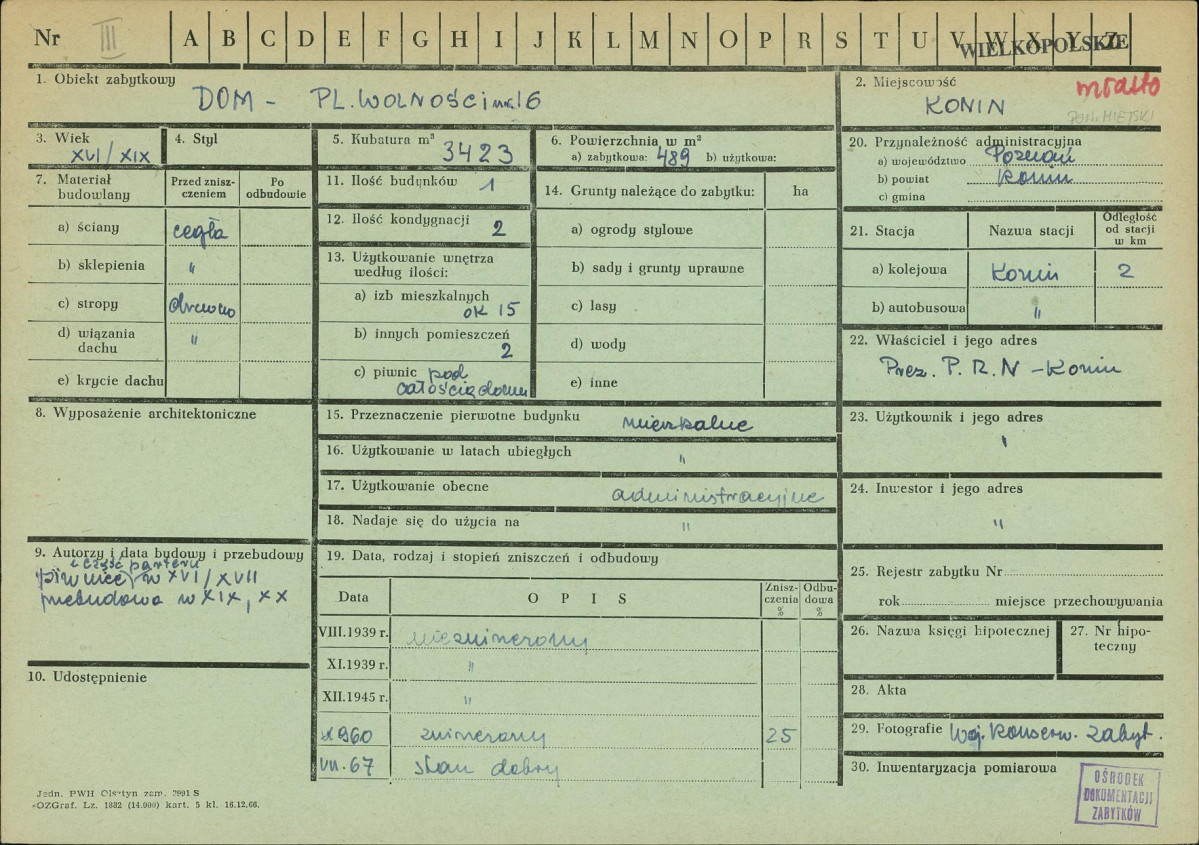 Nr III A B C D E F G H I J K L M N O P R S T U V W X Y Z
WIELKOPOLSKIE
1. Obiekt zabytkowy
DOM - PL. WOLNOŚCI nr 16
2. Miejscowość
miasto
KONIN
POW. MIEJSKI
3. Wiek
XVI/XIX
4. Styl
5. Kubatura m³
3423
6. Powierzchnia w m²
a) zabytkowa: 489 b) użytkowa:
20. Przynależność administracyjna
a) województwo Poznań
b) powiat Konin
c) gmina
7. Materiał budowlany
Przed znisz-
czeniem
Po
odbudowie
a) ściany cegła
b) sklepienia "
c) stropy drewno
d) wiązania
dachu "
e) krycie dachu
11. Ilość budynków 1
12. Ilość kondygnacji 2
13. Użytkowanie wnętrza
według ilości:
a) izb mieszkalnych
ok 15
b) innych pomieszczeń
2
c) piwnic pod
całością domu
14. Grunty należące do zabytku: ha
a) ogrody stylowe
b) sady i grunty uprawne
c) lasy
d) wody
e) inne
21. Stacja
Nazwa stacji
Odległość
od stacji
w km
a) kolejowa Konin 2
b) autobusowa "
22. Właściciel i jego adres
Prez. P.R.N - Konin
8. Wyposażenie architektoniczne
15. Przeznaczenie pierwotne budynku mieszkalne
16. Użytkowanie w latach ubiegłych "
17. Użytkowanie obecne administracyjne
18. Nadaje się do użycia na "
23. Użytkownik i jego adres
"
24. Inwestor i jego adres
"
9. Autorzy i data budowy i przebudowy
i część parteru
piwnice w XVI/XVII
przebudowa w XIX, XX
19. Data, rodzaj i stopień zniszczeń i odbudowy
Data OPIS
Znisz-
czenia
%
Odbu-
dowa
%
VIII.1939 r. niezmieniony
XI.1939 r. "
XII.1945 r. "
1960 zmieniony 25
VII.67 stan dobry
25. Rejestr zabytku Nr
rok miejsce przechowywania
26. Nazwa księgi hipotecznej
27. Nr hipo-
teczny
10. Udostępnienie
28. Akta
29. Fotografie Woj. Konserw. Zabyt.
30. Inwentaryzacja pomiarowa
OŚRODEK
DOKUMENTACJI
ZABYTKÓW
Jedn. PWH Olsztyn zam. 2991 S
OZGraf. Lz. 1882 (14.000) kart. 5 kl. 16.12.66.